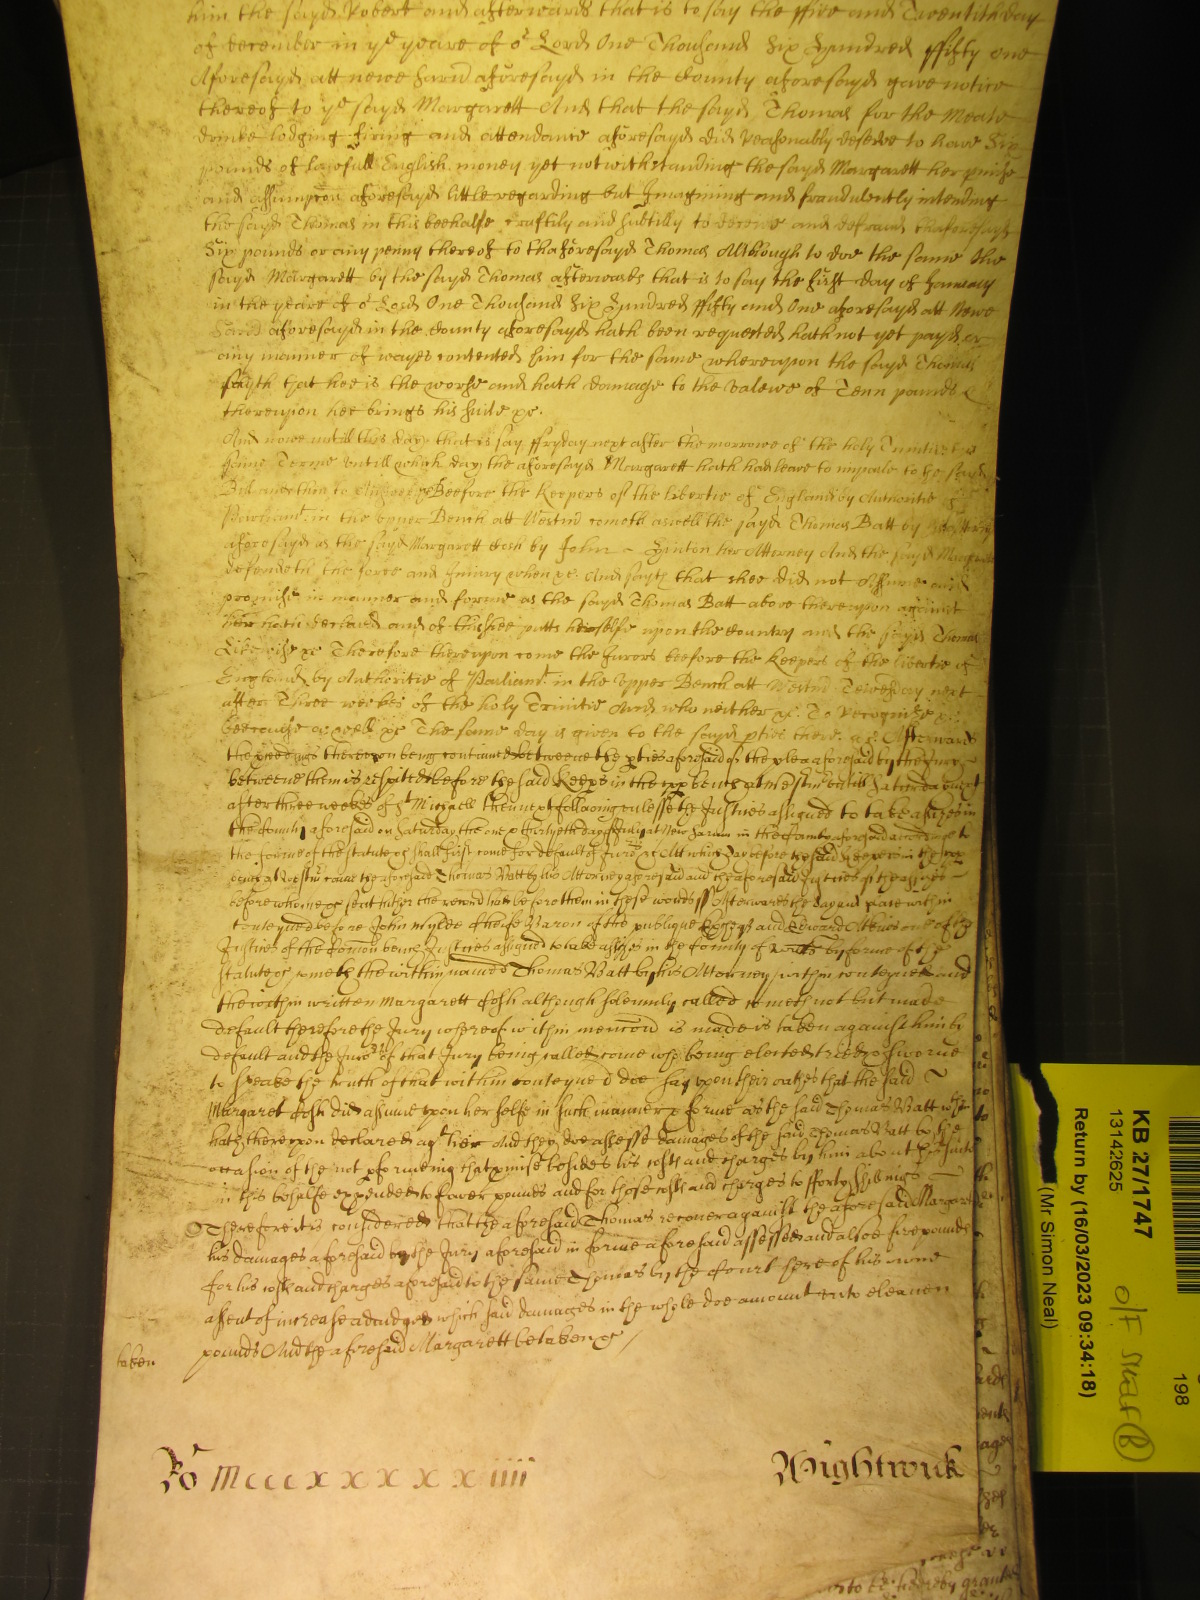 him the sayd Robert and afterwards that is to say the ffive and Twentith day
of december in ye yeare of or Lord One Thousand Six Hundred ffifty one
Aforesayd att newe Sarũ aforesayd in the County aforesayd gave notice
thereof to ye sayd Margarett And that the sayd Thomas for the Meate
drinke lodging firing and attendance aforesayd did reasonably deserve to have Six
pounds of lawfull English money yet notwithstanding the sayd Margarett her pmise
and assumpcon aforesayd little regarding but Imagining and fraudulently intending
the sayd Thomas in this beehalfe craftily and subtilly to deceive and defraud thaforesayd
Six pounds or any penny thereof to thaforesayd Thomas Although to doe the same the
sayd Margarett by the sayd Thomas afterwards that is to say the first day of January
in the yeare of or Lord One Thousand Six Hundred ffifty and One aforesayd att Newe
Sarũ aforesayd in the County aforesayd hath been requested hath not yet payd or
any manner of wayes contented him for the same whereupon the sayd Thomas
sayth that hee is the worse and hath damage to the valewe of Tenn pounds &
thereupon hee brings his suite &c.
And nowe untill this day that is say ffryday next after the morrowe of the holy Trinitie
same Terme Untill which day the aforesayd Margarett hath had leave to imparle to the sayd
Bill and then to Answere &c Beefore the Keepers of the libertie of England by Authoritie of
Parliamt. in the upper Bench att Westm̃ cometh aswell the sayd Thomas Batt by his Attorney
aforesayd as the sayd Margarett Cosh by John Hinton her Attorney And the sayd Margarett
defendeth the force and Iniury when &c. And sayth that shee did not Assume and
promise in manner and forme as the sayd Thomas Batt above thereupon against
her hath declared and of this shee putts herselfe upon the Country and the sayd Thomas
Likewise &c Therefore thereupon come the Jurors beefore the Keepers of the libertie of
England by Authoritie of Parliamt. in the Upper Bench att Westm̃ Tewesday next
after Three weekes of the holy Trinitie And who neither &c. To Recognise &c.
beecause aswell &c The same day is given to the sayd pties there. &c. Afterwards
the pcedings thereupon being continued betweene the pties aforesaid of the plea aforesaid by the Jury
betweene them is respited before the said Keeps in the upp bench at westm̃ untill Saturday next
after three weekes of St Michaell then next following unlesse the Justices assigned to take assizes in
the County aforesaid on Saturday the one & thirtyeth day of July at New Sarum in the County aforesaid according to
the forme of the statute &c shall first come for default of Jurors &c Att which day before the said Keepers in the upp
bench at Westm̃ came the aforesaid Thomas Batt by his Attorney aforesaid and the aforesaid Justices of the assizes
before whome &c sent hither the record had before them in these words ss Afterwards the day and place within
conteyned before John Wylde Cheife Baron of the publique Exchequer and Edward Atkins one of the
Justices of the Common bench Justices assigned to take assizes in the County of Wilts by forme of the
statute &c cometh the within named Thomas Batt by his Attorney within conteyned and
the within written Margarett Cosh although solemnly called cometh not but made
default therefore the Jury whereof within mencoñd is made is taken against him by
default and the Jurors of that Jury being called come who being elected tried & sworne
to speake the truth of that within conteyned doe say upon their oathes that the said
Margaret Cosh did assume upon her selfe in such manner & forme as the said Thomas Batt wthin
hath thereupon declared agt. her And they doe assesse damages of the said Thomas Batt by the
occasion of the not pforming that pmise besides his costs and charges by him about his suite
in this behalfe expended to fower pounds and for those costs and charges to fforty shillings
Therefore it is considered that the aforesaid Thomas recover against the aforesaid Margarett
his damages aforesaid by the Jury aforesaid in forme aforesaid assessed and alsoe five pounds
for his costs and charges aforesaid to the same Thomas by the Court here of his owne
assent of increase adiudged which said damages in the whole doe amount unto eleaven
pounds And the aforesaid Margarett be taken &c
taken
Ro Mcccxxxxxxiiii
Wightwick
KB 27/1747
13142625
Return by (16/03/2023 09:34:18)
(Mr Simon Neal)
198